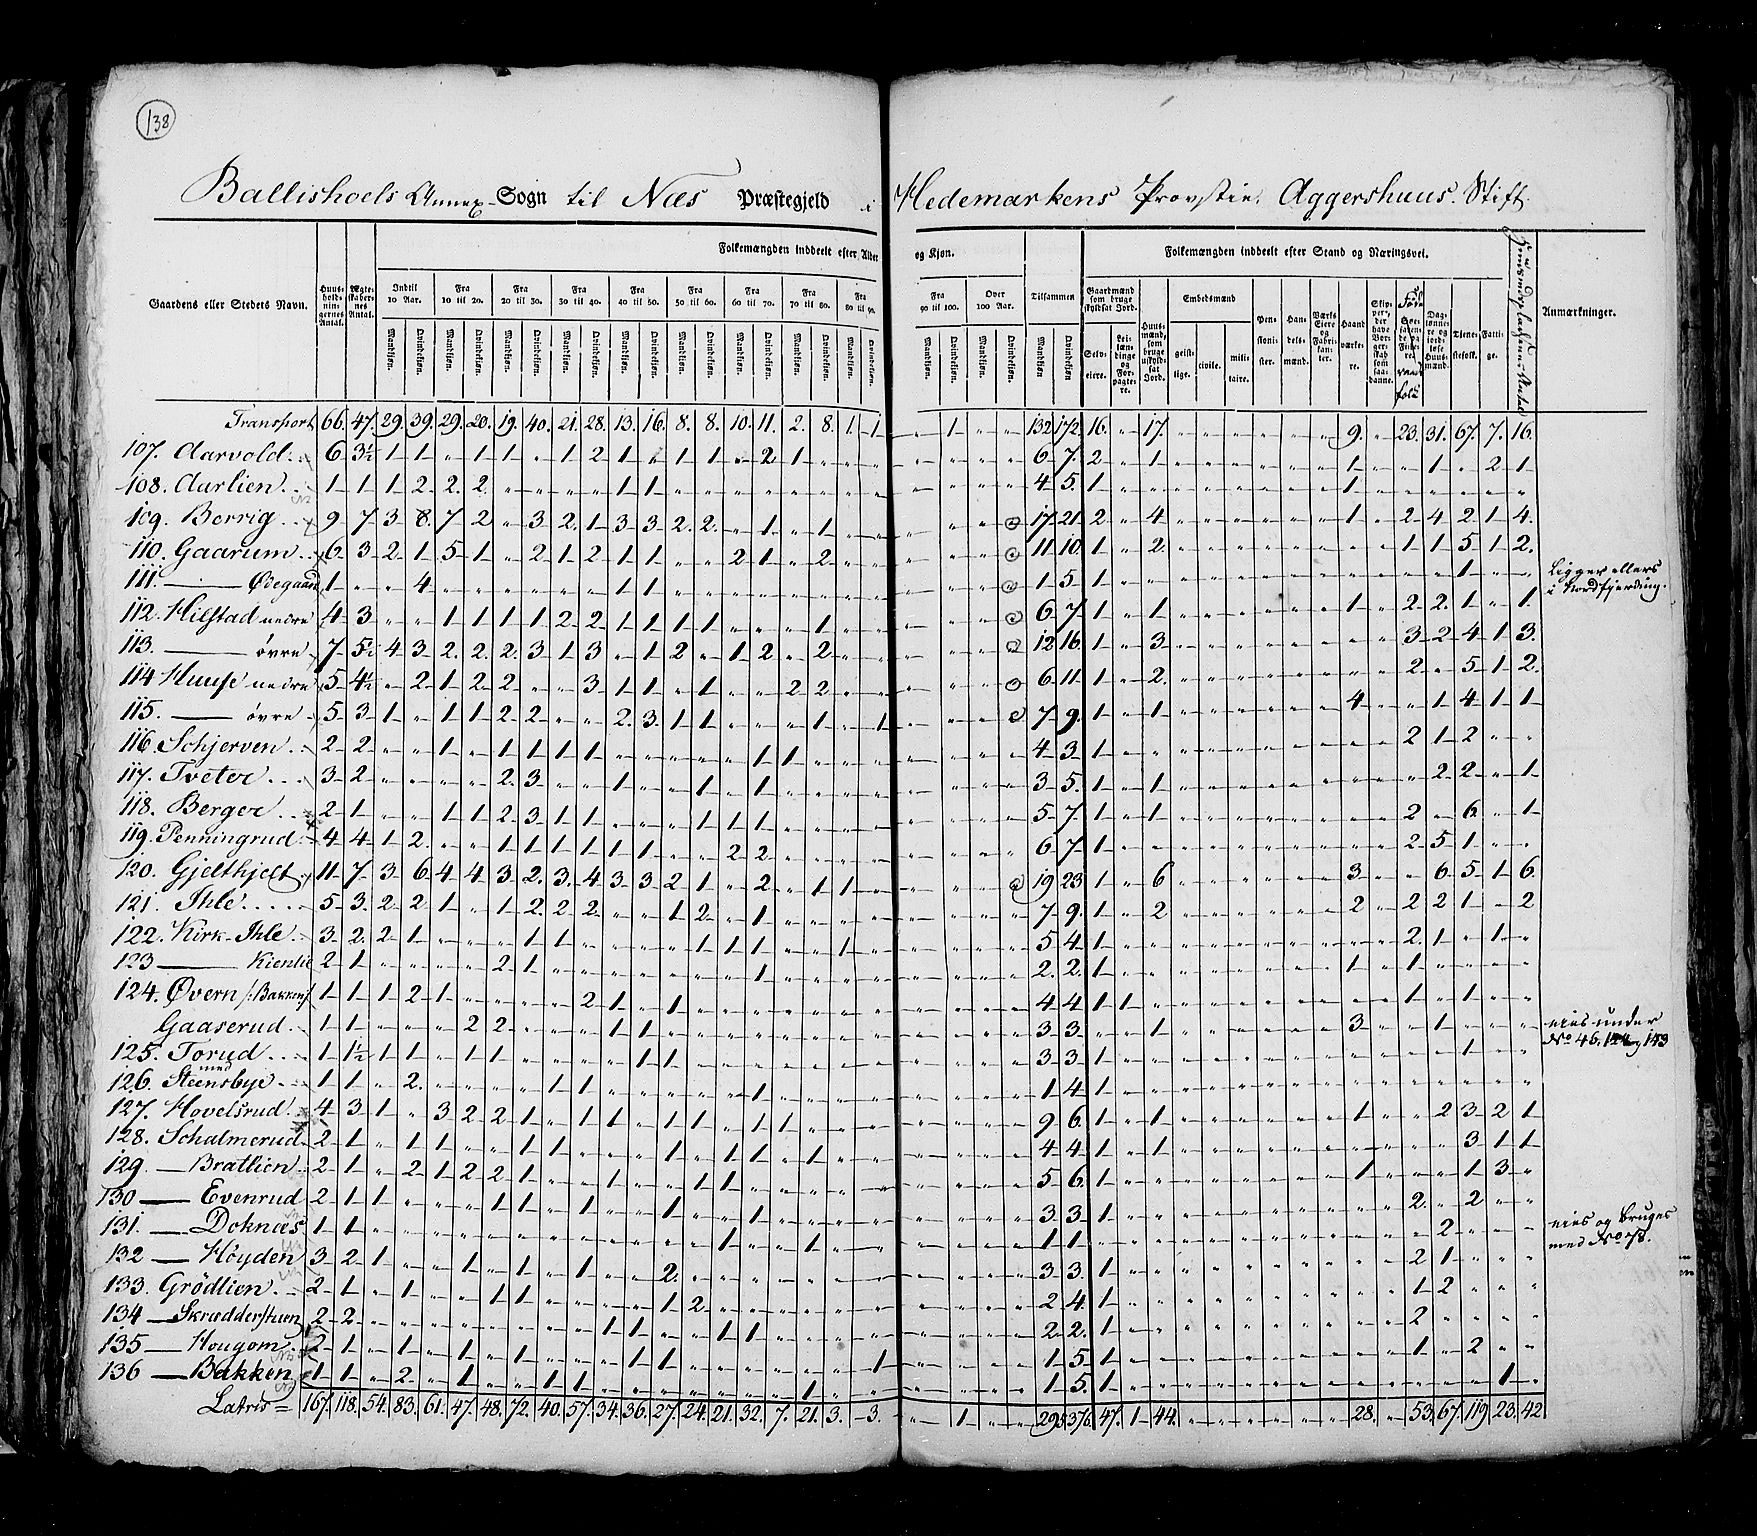 138
Ballishoels Annex-Sogn til Næs Præstegjeld i Hedemarkens Provstie. Aggershuus. Stift.
Folkemængden inddeelt efter Alder og Kjøn. Folkemængden inddeelt efter Stand og Næringsvei.
Gaardens eller Stedets Navn. Huus-hold-nin-gernes Antal. Ægte-skaber-nes Antal. Indtil 10 Aar. Fra 10 til 20. Fra 20 til 30. Fra 30 til 40. Fra 40 til 50. Fra 50 til 60. Fra 60 til 70. Fra 70 til 80. Fra 80 til 90. Fra 90 til 100. Over 100 Aar. Tilsammen Anmærkninger.
Mandkiøn. Qvindekiøn.
Gaardmænd som bruge skyldsat Jord. Selv-eiere. Lei-lændinge og For-pagtere. Huus-mænd, som bruge uskyldsat Jord. Embedsmænd geist-lige. civile. mili-taire. Pen-sioni-ster. Han-dels-mænd. Værks Eiere og Fabri-kan-ter. Haand-værke-re. Skip-per, der have Bor-gerskab som saa-danne. Dag-lønne-re og jordløse Huus-mænd. Tjene-stefolk. Fatti-ge.
Transport 66. 47. 29. 39. 29. 20. 19. 40. 21. 28. 13. 16. 8. 8. 10. 11. 2. 8. 1. 1 1 132 172. 16. 17. 9. 23. 31. 67. 7. 16.
107. Aarvold 6 3½ 1 1 1 1 1 2 1 1 1 2 1 6 7. 2 1 1 1 2 1
108. Aarlien 1 1 1 2 2. 2. 1 1 4 5. 1 1
109. Berrig 9 7 3 8. 7 2 3 2. 1 3 3 2. 2. 1 1 17 21. 2 4 1 2 4 2 1 4.
110. Gaarum 6. 3 2 1 5 1 2 1 2 1 1 2 1 2 11 10. 1 2. 1 1 5 1 2.
111. Ødegaard 1 4 1 1 1 5. 1 1 Ligger ellers
i Nordfjerding.
112. Hilstad nedre 4 3 1 1 1 1 2 2 1 1 1 1 1 6 7. 1 1 1 2 2. 1 1.
113. øvre 7 5½ 4 3 2. 2. 2. 3 1 3 1 2 1 2 2 12 16. 1 3 3 2 4 1 3.
114 Huuse nedre 5 4½ 2 1 2 2 3 1 1 1 2 2 6 11 1 2. 2 5 1 2.
115. øvre 5 3 1 1 1 2 2 2. 3. 1 1 1 1 7 9. 1 1 4 1 4 1 1
116. Schjerven 2 2 1 1 1 1 1 1 1 4 3 1 2 1 2
117. Tveter 3 2 2. 3 1 1 1 3 5. 1 1 2 2 1
118. Berger 2 1 1 1 2 3 1 1 1 1 1 5 7 1 1 2 6 1
119. Penningrud 4 4 1 2 1 1 1 1 1 1 2 2 6 7. 1 2 5 1
120. Gjelthjelt 11 7 3 6 4 4 3 2. 3. 4 3 3 2 1 2 1 1 19 23 1 6 3 6 5 1 6
121. Ihle 5 3. 2 2 1 1 2. 2 2 1 2 1 7 9. 1 2 2 2 2 1 2
122. Kirk-Ihle 3 2. 2 1 1 1 1 1 1 1 5 4 1 2. 1 1
123 Kienlie 2 1 2 1 1 2. 2. 1 1 1
124. Øvern /: Bakken 1 1 1 2 1 2 1 1 4 4 1 1 1 1
Gaaserud 1 1 2 2 1 1 3 3 1 3 1 eies under
No 46. 124 og 143
125. Torud 1 1½ 1 1 1 1 1 1 3 3 1 1
126. med Steensbye 1 1 2. 1 1 1 1 4 1
127. Hovelsrud 4 3 1 3 2 2 1 1 1 1 1 1 1 9 6. 1 1 1 2 3 2 1
128. Schalmerud 2 1 1 1 1 1 1 1 1 1 4 4 1 1 3 1 1
129. Bratlien 2 1 2 1 2 2 1 1 1 1 5 6. 1 1 1 3
130 Evenrud 2 1 1 1 1 1 1 1 3 3. 1 2. 2
131. Doknæs 1 1 1 1 1 1 2 eies og bruges
med No 78.
132 Høyden 3 2 1 1 1 1 2. 3 3. 1 2 1
133. Grödlien 2 1 1 1 1 1 2 2 4. 1 1 2
134 Skrædderstuen 2 2 1 1 1 1 2 2. 1 2
135 Hougom 2 1 1 1 1 1 1 1 1 5 1 1 2
136 Bakken 1 1 2 1 1 1 1 1 5. 1 1
Latus = 167. 118. 54. 83. 61. 47. 48. 72. 40. 57. 34. 36. 27. 24. 21. 32. 7. 21. 3. 3. 1 295 376. 47. 1 44. 28. 53. 67. 119 23. 42